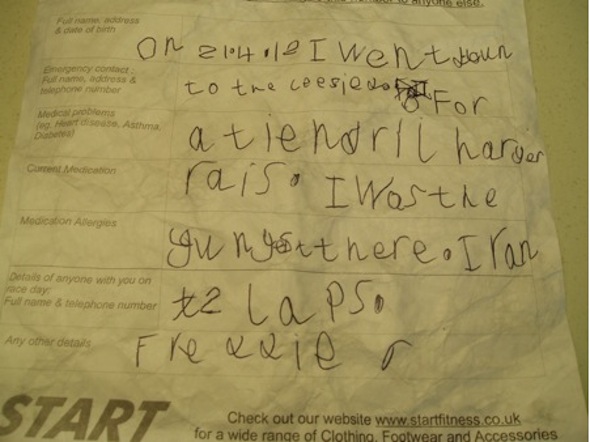 to anyone else.
Full name, address
& date of birth
On 21.4.12 I went doun
Emergency contact :
Full name, address &
telephone number
to the
For
Medical problems
(eg. Heart disease, Asthma,
Diabetes)
a tiendril harder
Current Medication
rais. I was the
Medication Allergies
yungest there. I ran
Details of anyone with you on
race day:
Full name & telephone number
2 laps.
Any other details
Freddie r
START
Check out our website www.startfitness.co.uk
for a wide range of Clothing, Footwear and Accessories